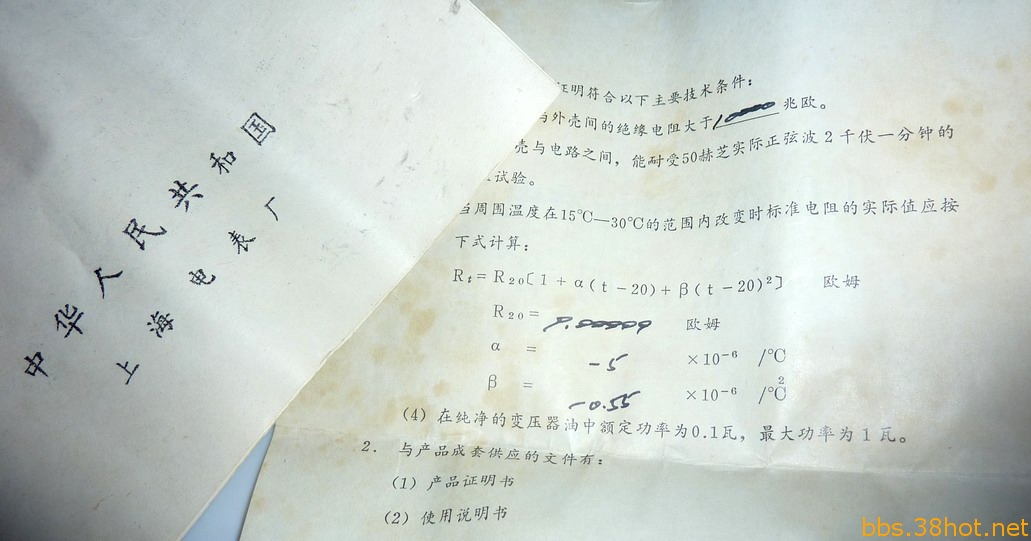 中华人民共和国
上海电表厂
证明符合以下主要技术条件:
与外壳间的绝缘电阻大于10000兆欧。
壳与电路之间，能耐受50赫芝实际正弦波2千伏一分钟的
试验。
当周围温度在15℃—30℃的范围内改变时标准电阻的实际值应按
下式计算:
Rt=R20[1+α(t-20)+β(t-20)²] 欧姆
R20= 欧姆
α = -5 ×10-6 /℃
β = -0.55 ×10-6 /℃²
(4) 在纯净的变压器油中额定功率为0.1瓦，最大功率为1瓦。
2. 与产品成套供应的文件有:
(1) 产品证明书
(2) 使用说明书
bbs.38hot.net